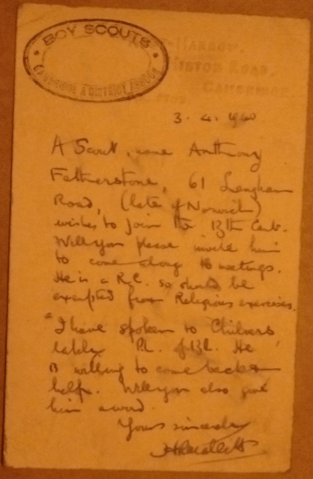 BOY SCOUTS
CAMBRIDGE & DISTRICT
ROAD,
CAMBRIDGE
3. 4. 40
A Scout, one Anthony
Fetherstone, 61 Langham
Road, (late of Norwich)
wishes to join the 13th Camb.
Will you please invite him
to come along to meetings.
He is a R.C. so should be
excepted from Religious exercises.
I have spoken to Chilvers
lately P.L. of 13th. He
is willing to come back &
help. Will you also give
him a word.
Yours sincerely